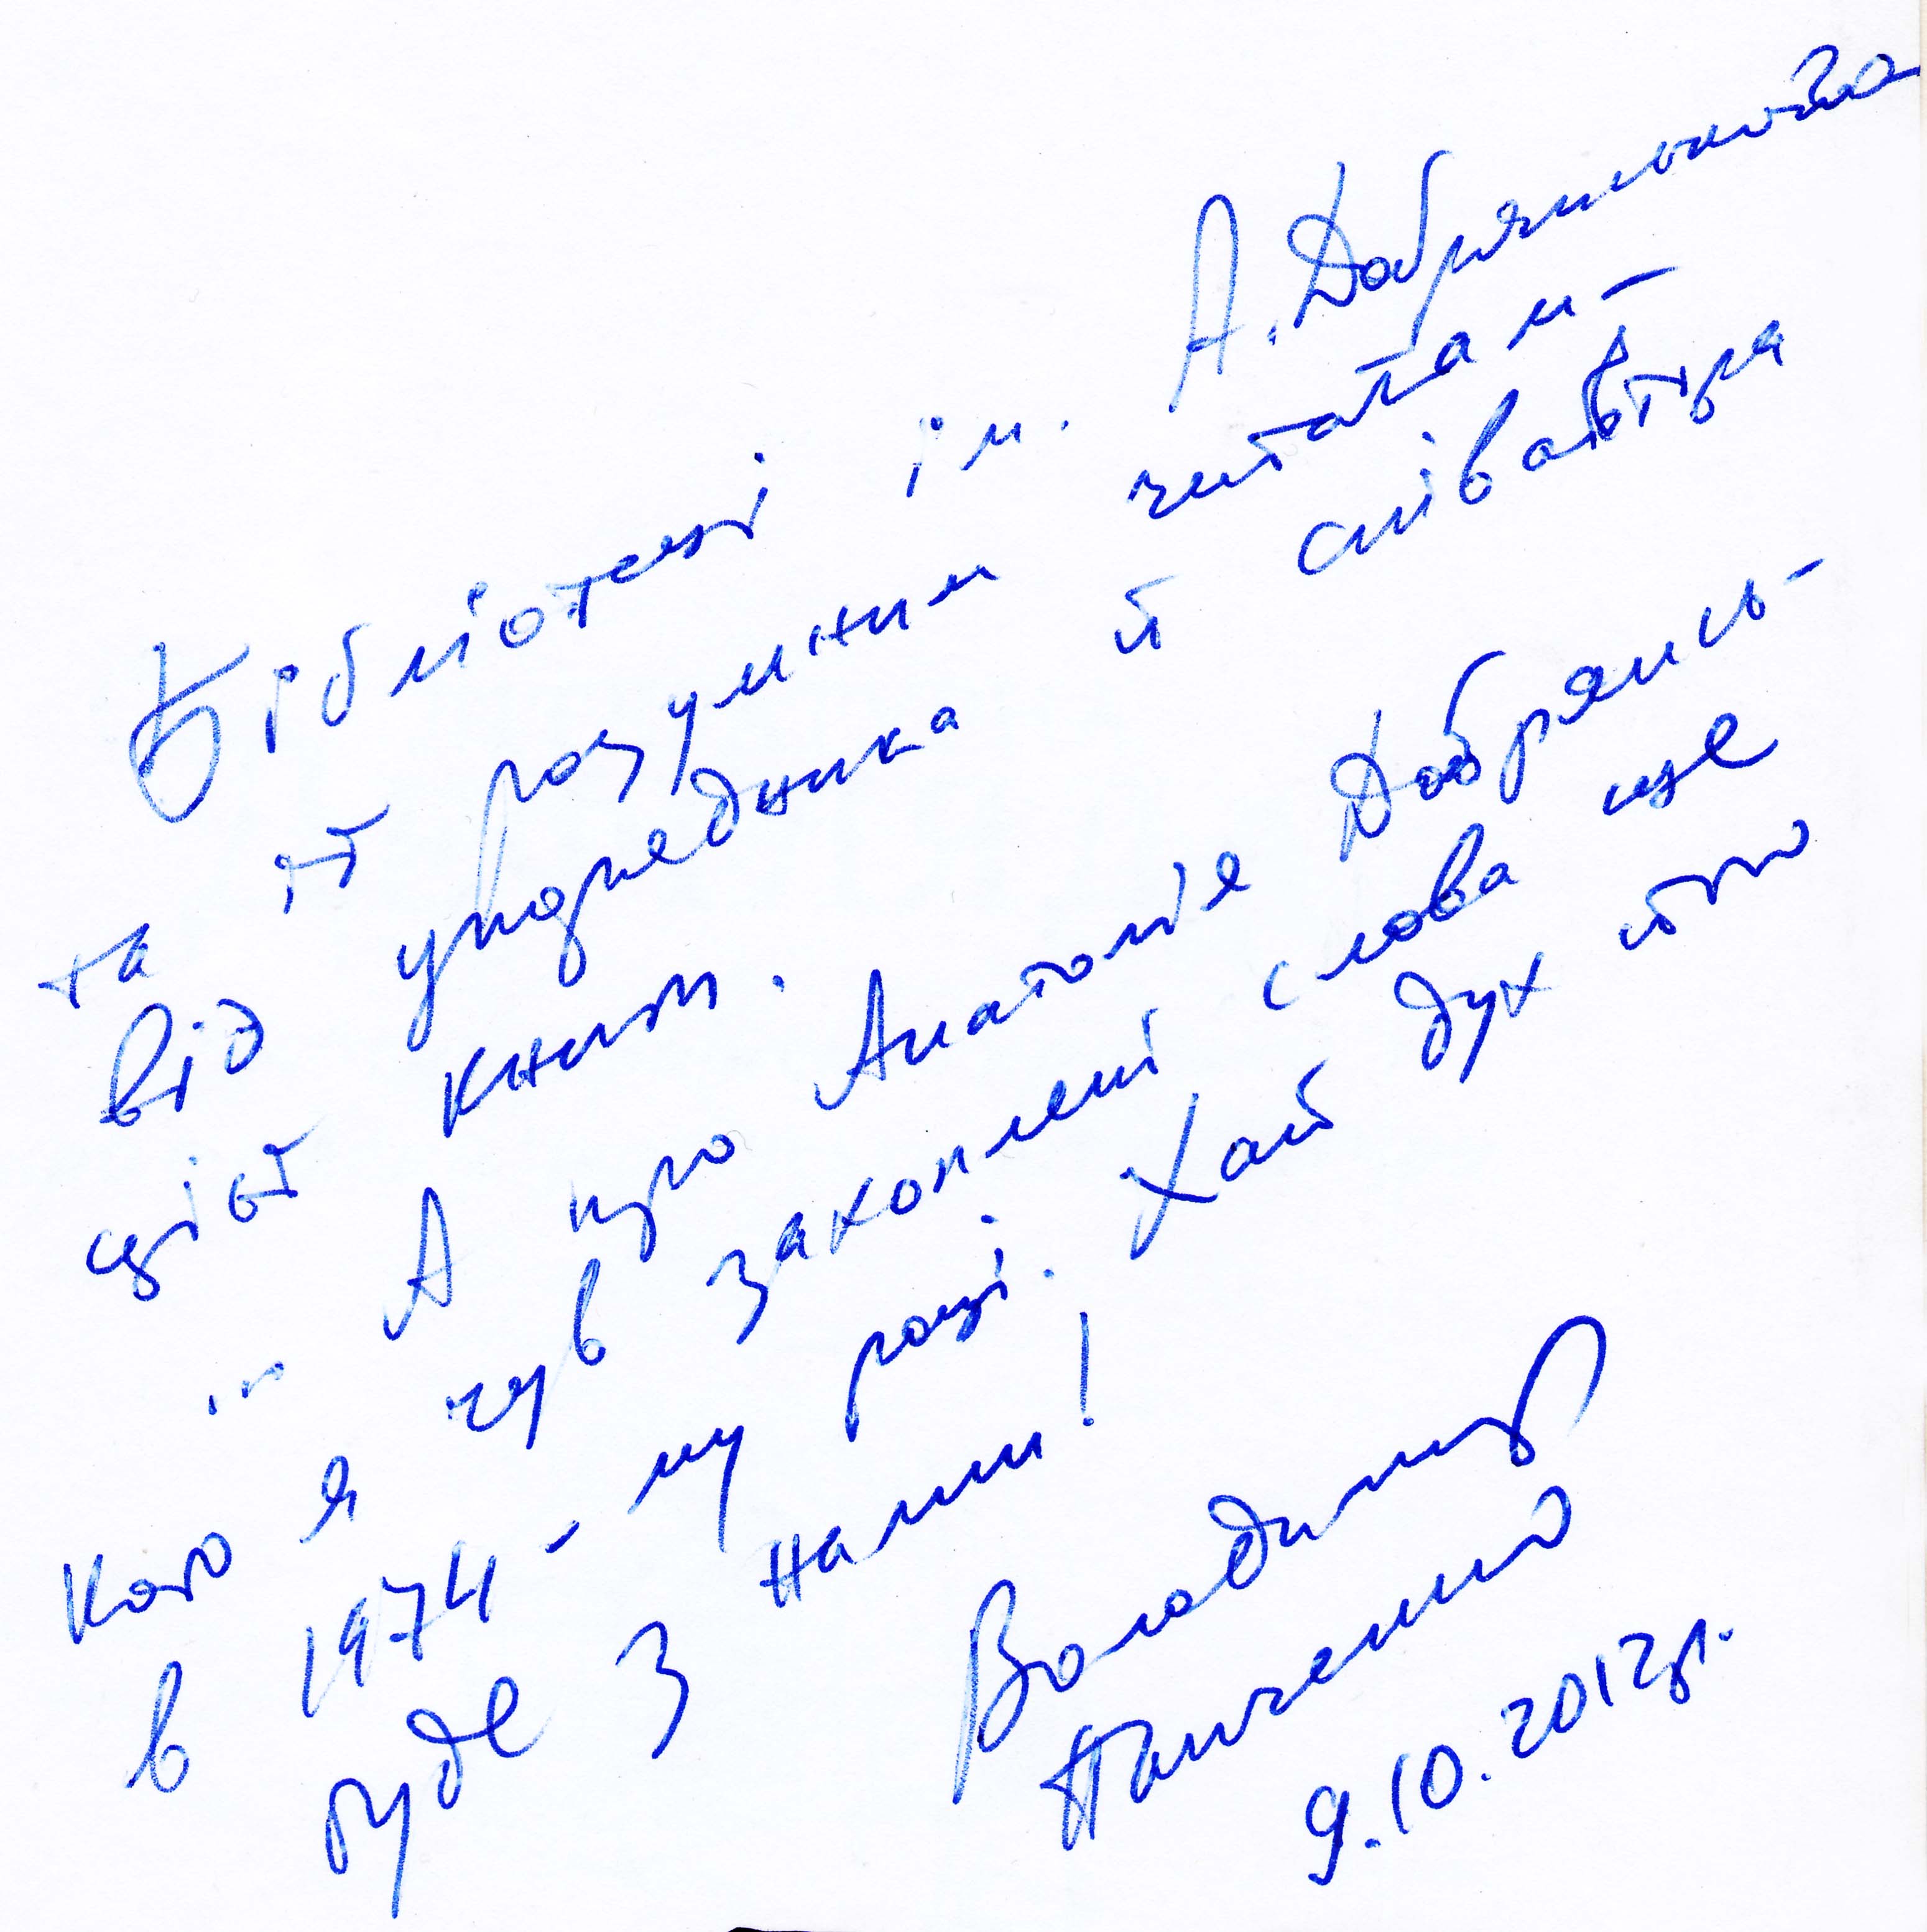 Бібліотеці ім. А. Добрянського
та її розумним читачам –
від упорядника й співавтора
цієї книги.
... А про Анатолія Добрянсь-
кого я чув захоплені слова ще
в 1974-му році. Хай дух його
буде з нами!
Володимир
Панченко
9.10.2012р.